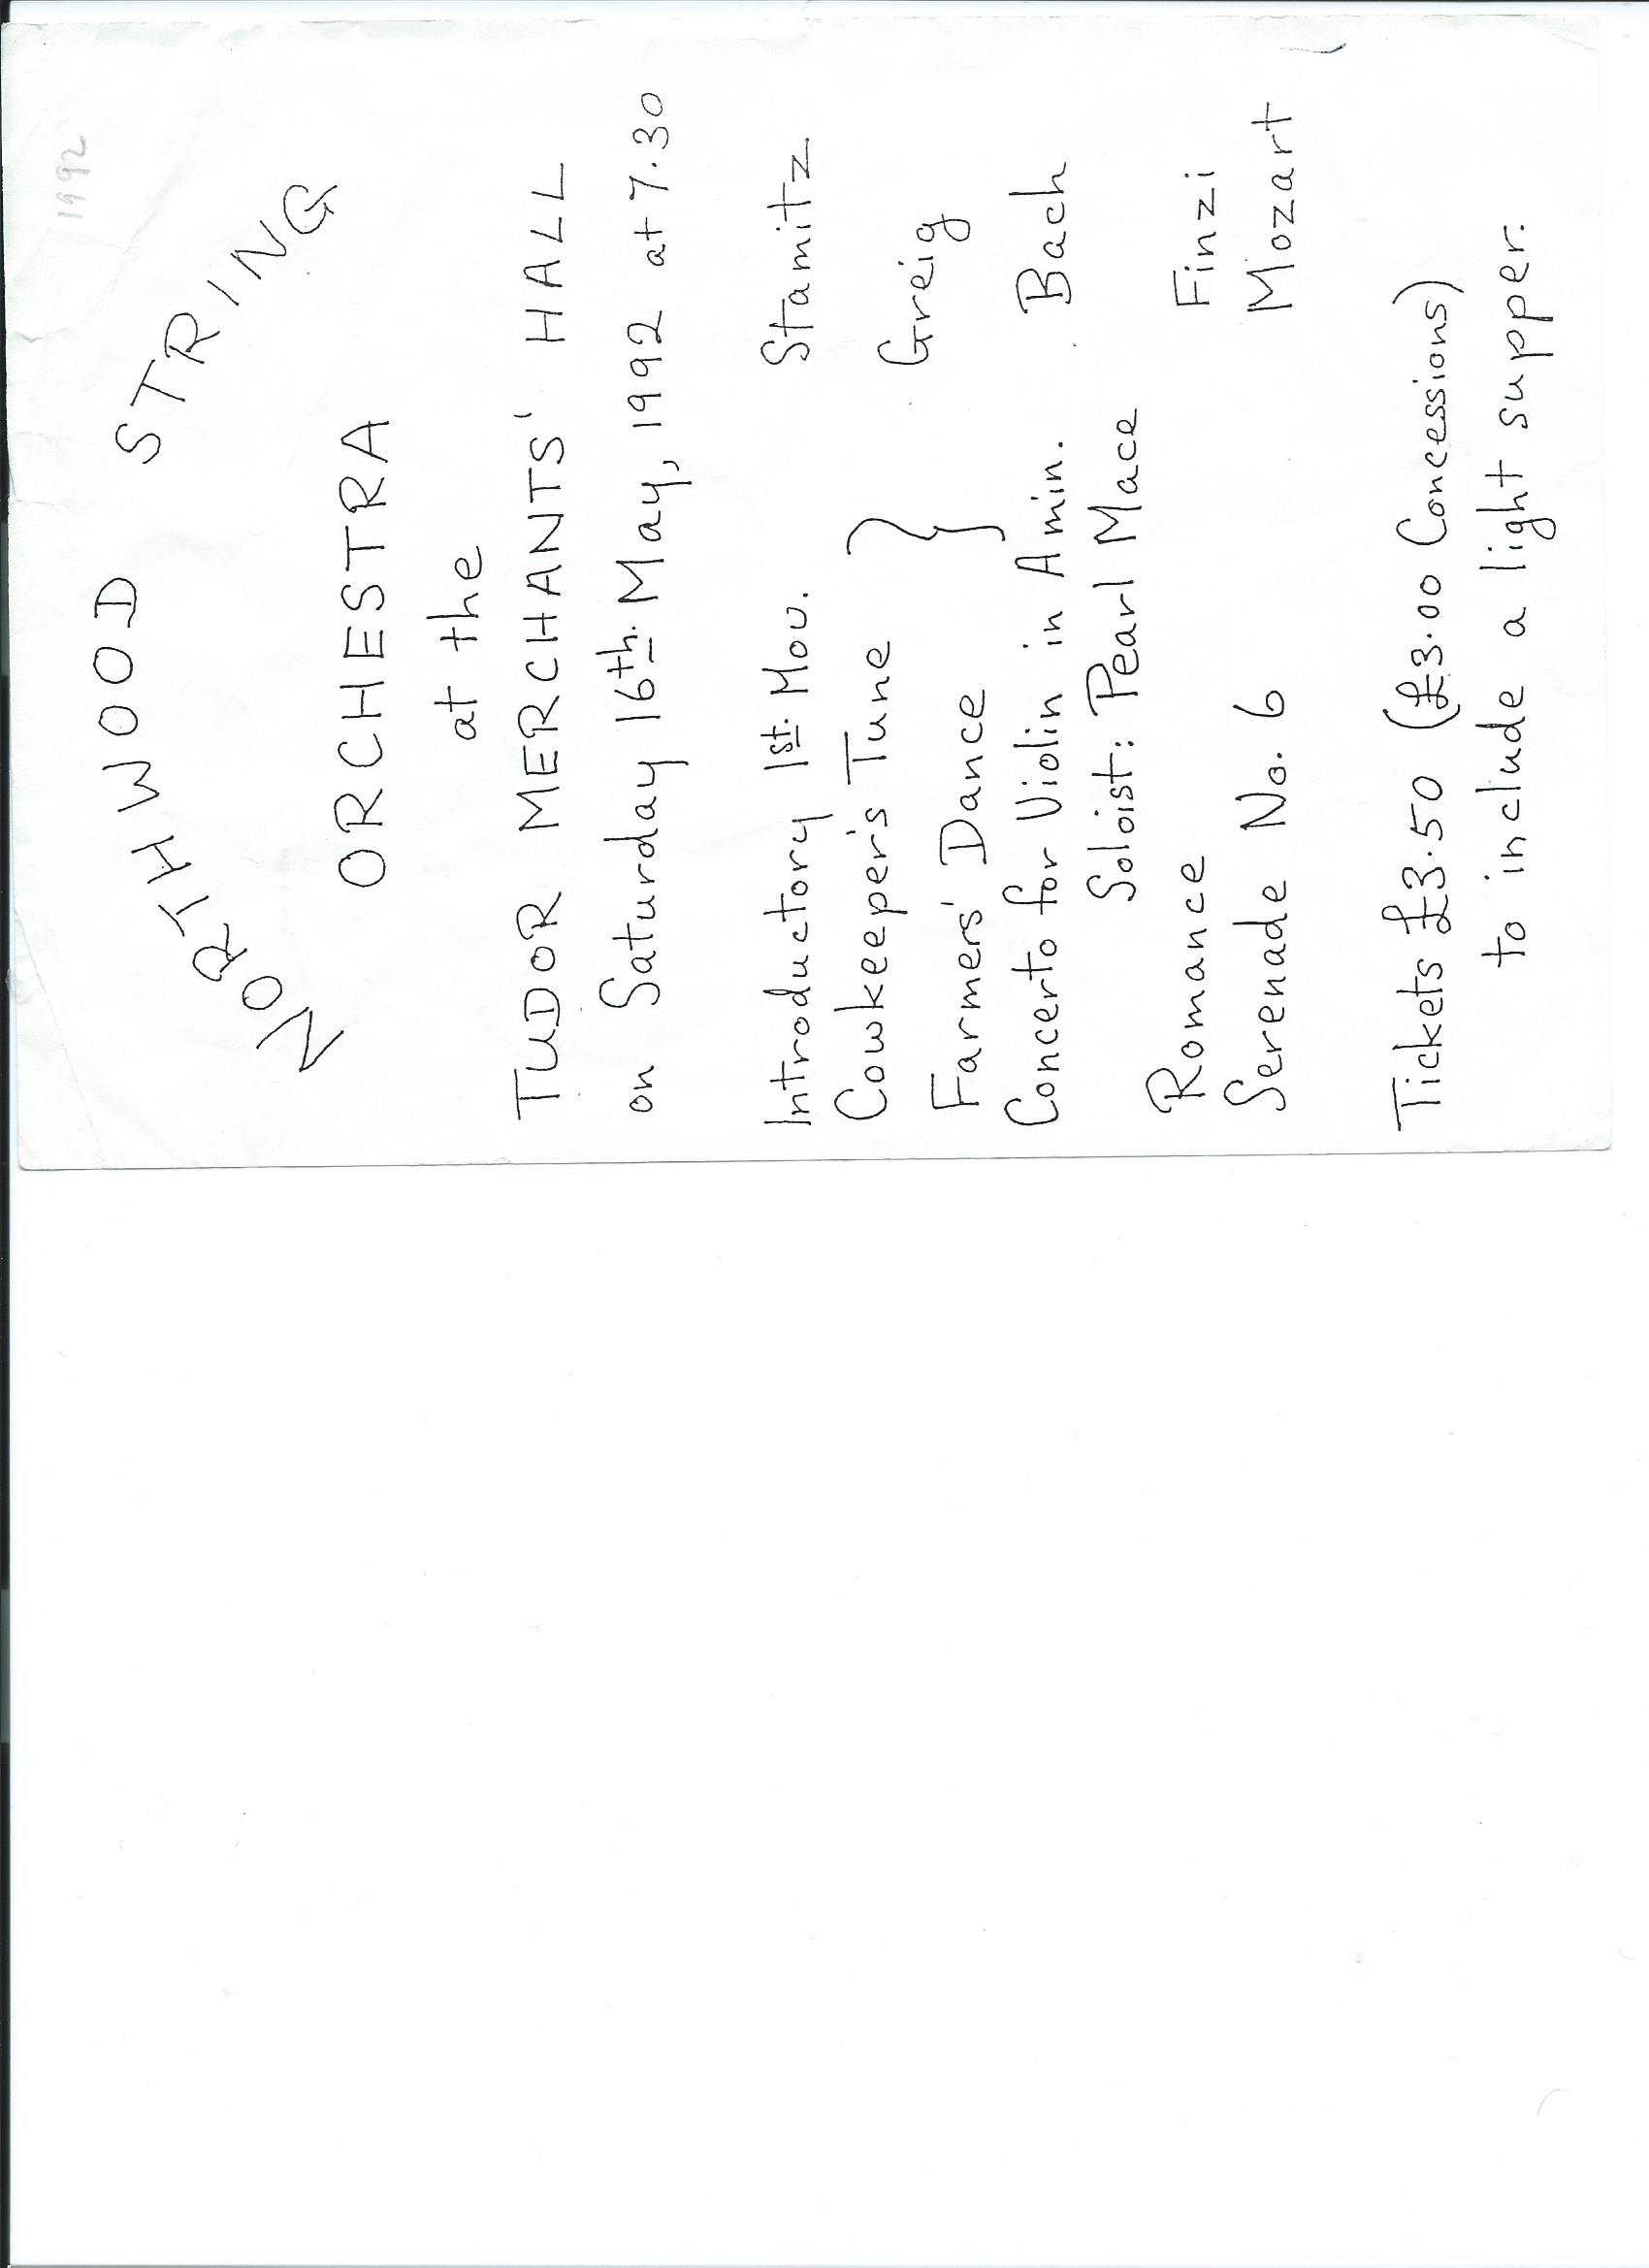 1992
NORTHWOOD STRING
ORCHESTRA
at the
TUDOR MERCHANTS' HALL
on Saturday 16th. May, 1992 at 7.30
Introductory 1st. Mov. Stamitz
Cowkeeper's Tune }
Greig
Farmers' Dance
Concerto for Violin in A min. Bach
Soloist: Pearl Mace
Romance Finzi
Serenade No. 6 Mozart
Tickets £3.50 (£3.00 Concessions)
to include a light supper.